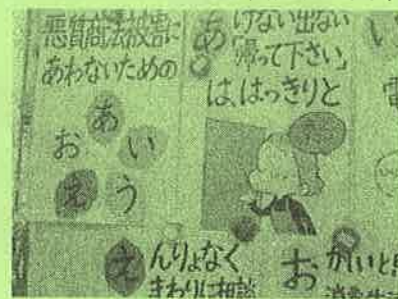 悪質商法被害に
あわないための
あ
お い
え う
あ けない出ない
「帰って下さい」
は、はっきりと
い
電
え んりょなく
まわりに相談
お かしいと